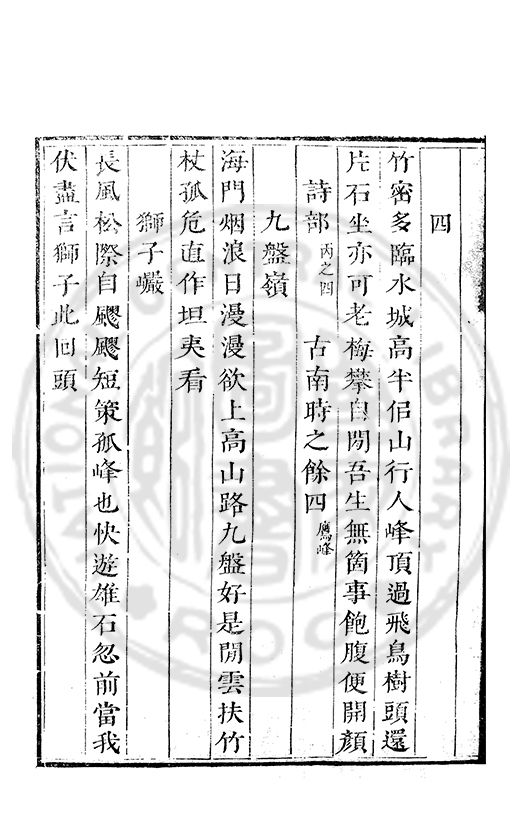 四
竹密多臨水城高半佀山行人峰頂過飛鳥樹頭還
片石坐亦可老梅攀自閒吾生無箇事飽腹便開顏
詩部丙之四 古南時之餘四鷹峰
九盤嶺
海門烟浪日漫漫欲上高山路九盤好是閒雲扶竹
杖孤危直作坦夷看
獅子巖
長風松際自飀飀短策孤峰也快遊雄石忽前當我
伏盡言獅子此回頭